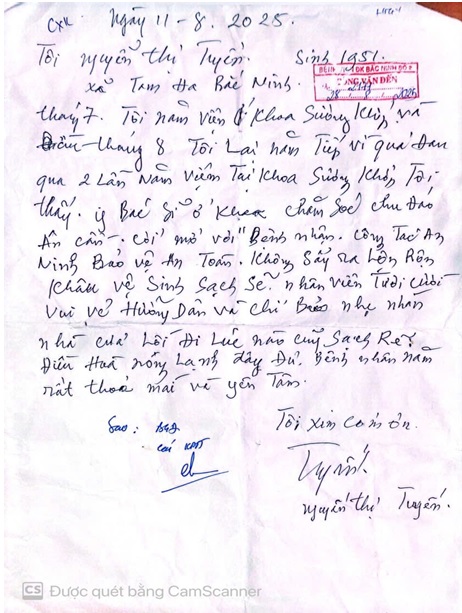 CXK
Ngày 11-8.2025.
Tôi nguyễn thị Tuyến. Sinh 1951.
xã Tam Đa Bắc Ninh.
BỆNH VIỆN ĐK BẮC NINH SỐ 2
CÔNG VĂN ĐẾN
28/8/2025
tháy 7. Tôi nằm viên ở Khoa Sương Khớp và
Điều-tháng 8 Tôi Lại nằm Tiếp vì quá đau
qua 2 Lần Nằm viêm Tại Khoa Sương Khớp Tôi
thấy. y Bác Sĩ ở Khoa chăm Sóc chu Đáo
Ân cần. Cởi mở với Bệnh nhân. Công Tác An
Ninh Bảo vệ An Toàn. Không Sảy ra Lộn Rộn
Khâu vệ Sinh Sạch Sẽ. nhân viên Tươi cười
Vui vẻ Hướng Dẫn và chỉ Bảo nhẹ nhàn
nhà cửa Lối Đi Lúc nào cũng Sạch Rẽ.
Điều Hoà nóng Lạnh đây Đủ. Bệnh nhân nằm
rất thoả mái và yên Tâm.
Tôi xin cảm ơn.
Sao:
Tuyến.
nguyễn thị Tuyến.
CS Được quét bằng CamScanner